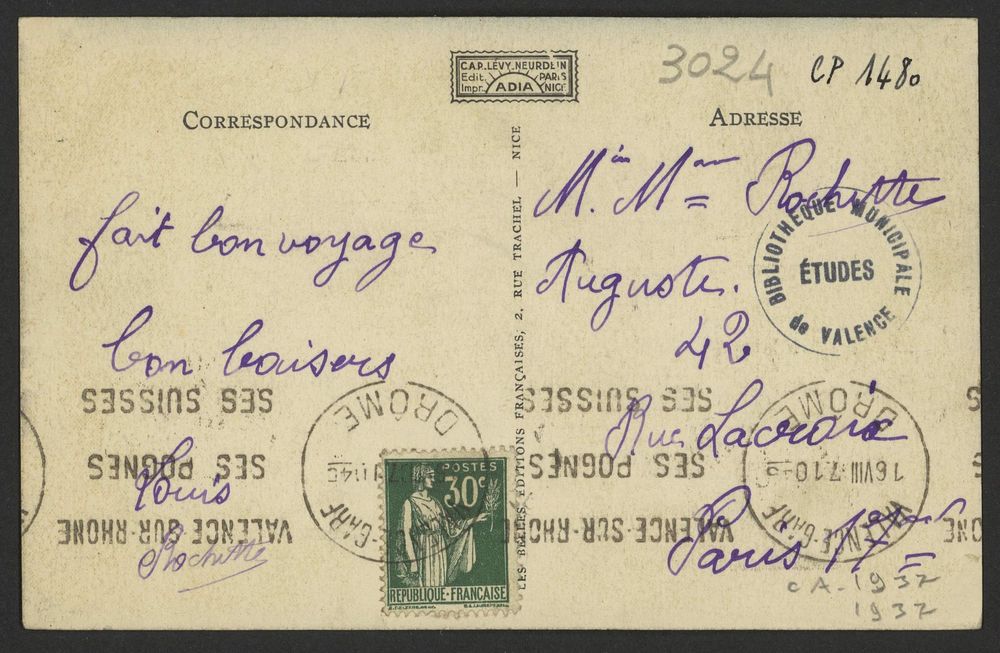 C.A.P. LÉVY-NEURDEIN
Edit. PARIS
Impr. ADIA NICE
3024 CP 1480
CORRESPONDANCE
fait bon voyage
bon baisers
Louis
Rochette
LES BELLES ÉDITIONS FRANÇAISES, 2, RUE TRACHEL — NICE
ADRESSE
Rochette
Auguste.
42
Rue Lacroix
Paris 17
BIBLIOTHEQUE MUNICIPALE
ÉTUDES
de VALENCE
VALENCE-SUR-RHONE
SES POGNES
SES SUISSES
VALENCE-GARE
DROME
16 VIII
VALENCE-SUR-RHONE
SES POGNES
SES SUISSES
VALENCE-GARE
DROME
POSTES
30c
RÉPUBLIQUE-FRANÇAISE
CA-1937
1937